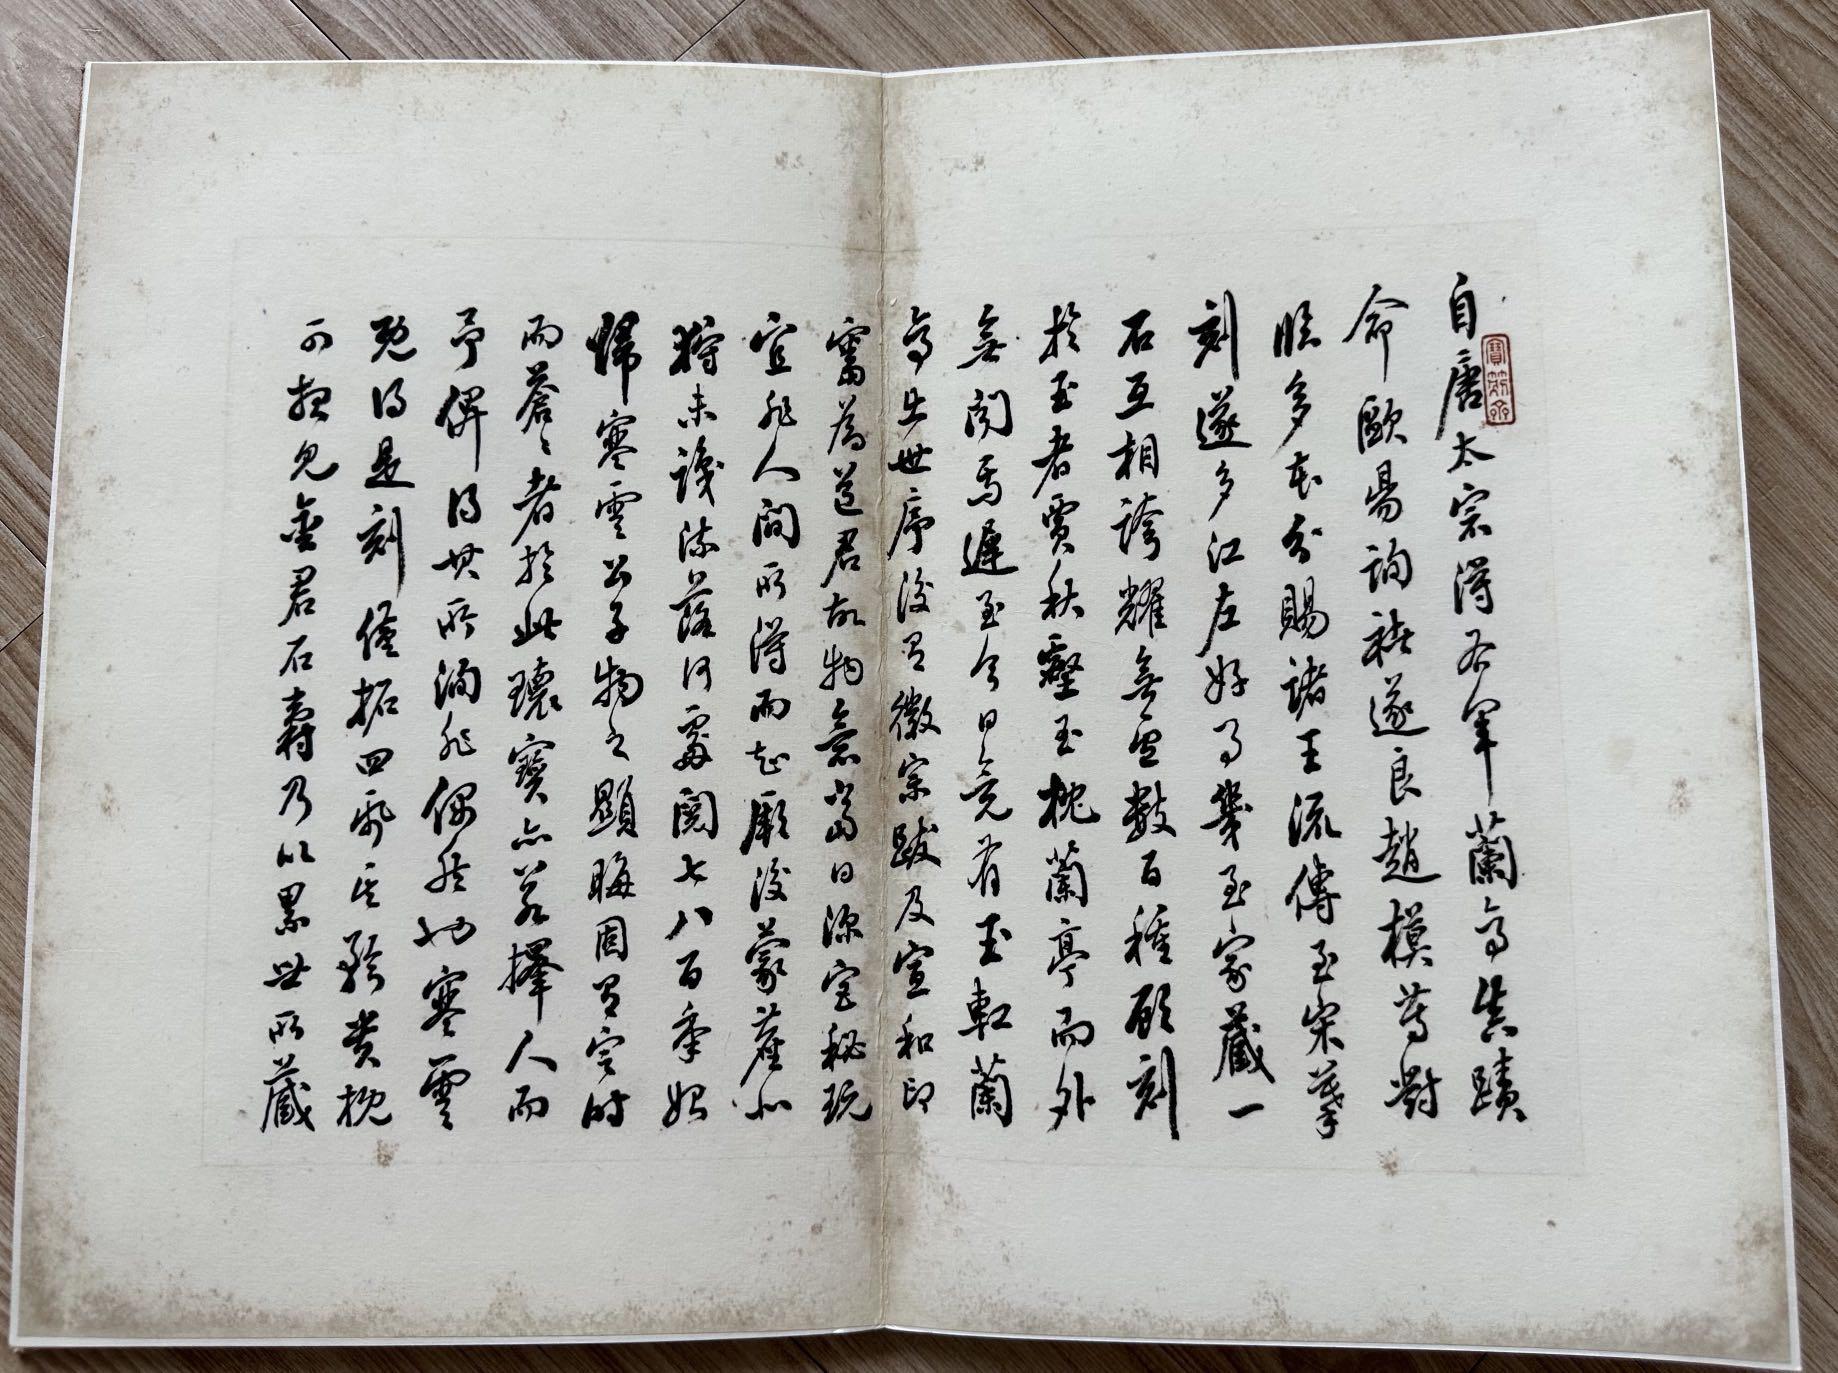 自唐太宗得右軍蘭亭真蹟
命歐陽詢褚遂良趙模等對
臨多本分賜諸王流傳至宋摹
刻遂多江左好事幾至家藏一
石互相誇耀無慮數百種顧刻
於玉者賈秋壑玉枕蘭亭而外
無聞焉遲至今日竟有玉版蘭
亭出世序後有徽宗跋及宣和印
璽為道君故物意當日深宮秘玩
宜非人間所得而知厥後蒙塵北
狩未識流落何處閱七八百年始
歸寒雲公子物之顯晦固有定時
而蒼蒼者於此瓌寶亦若擇人而
予俾得其所洵非偶然也寒雲
既得是刻僅拓四紙其矜貴概
可想見金君石壽乃以累世所藏
寶